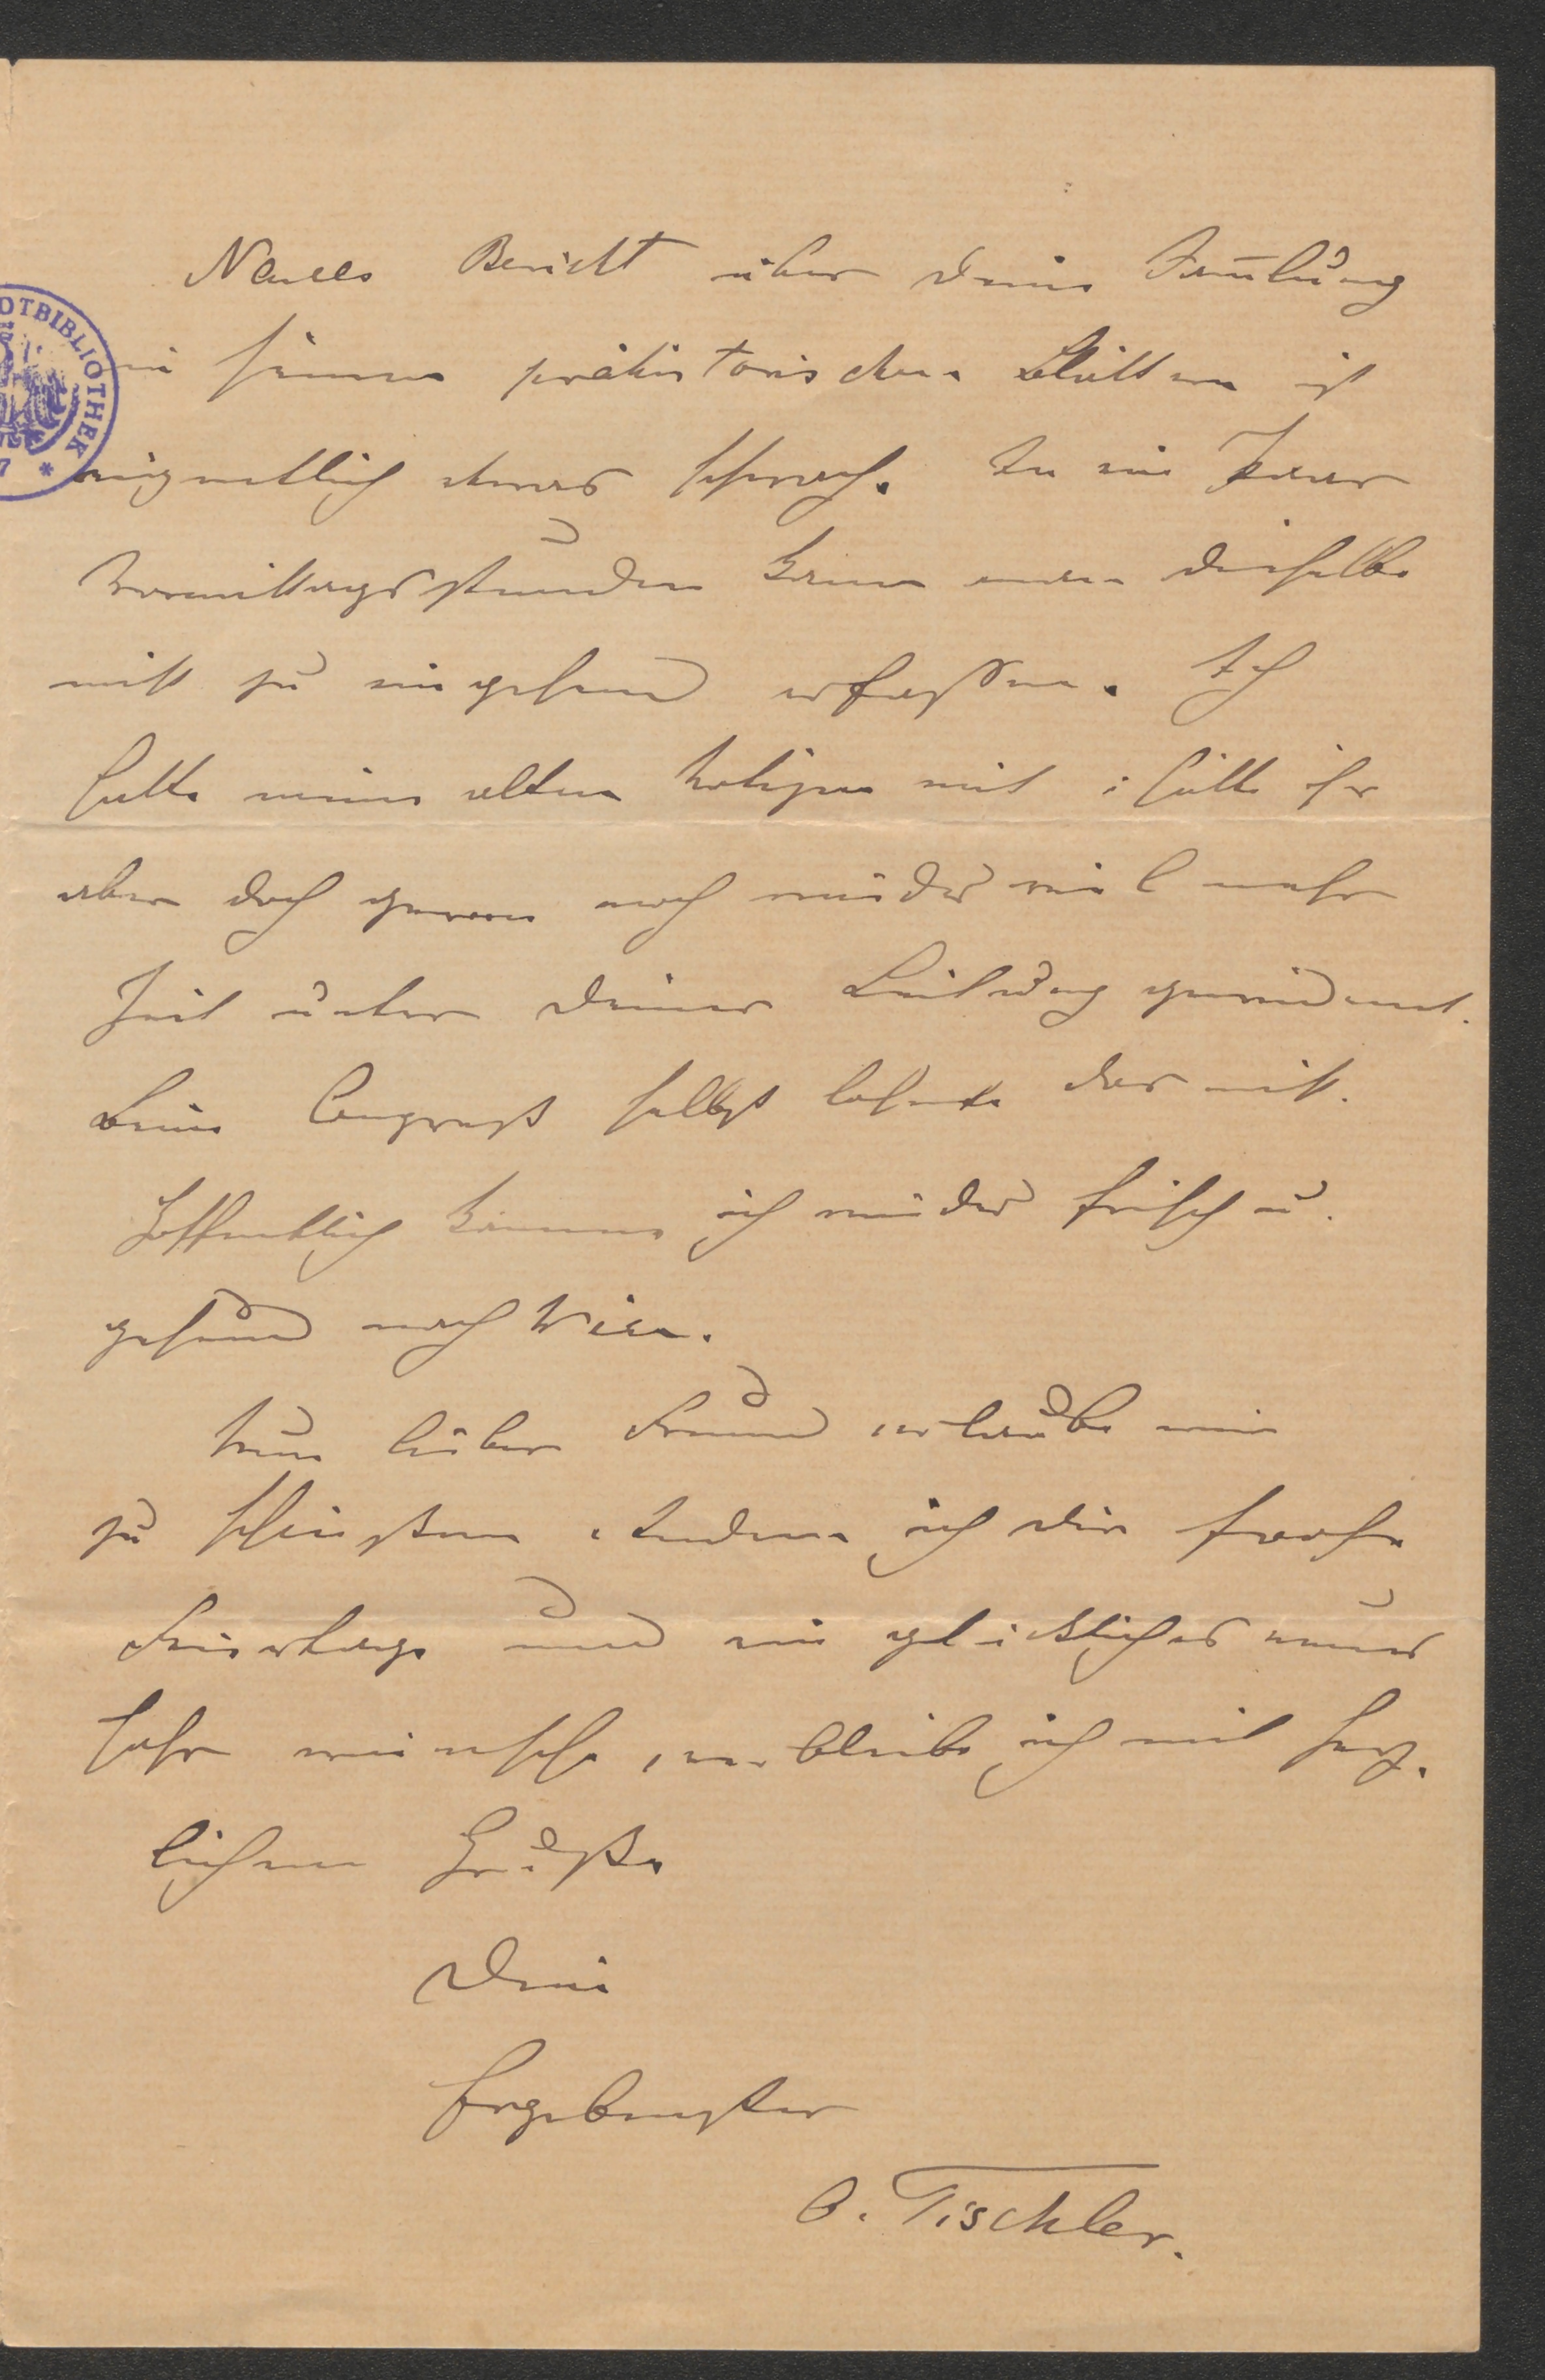 Naues Bericht über Deine Sam̅lung
in seinen prähistorischen Blättern ist
eigentlich etwas schwach. In ein Paar
Vormittagsstunden kann man dieselbe
nicht zu eingehend erfassen. Ich
hatte meine alten Notizen mit; hätte ihr
aber doch gern noch wieder viel mehr
Zeit unter Deiner Leitung gewidmet.
Beim Congreß selbst lohnte das nicht.
Hoffentlich komme ich wieder frisch u.
gesund nach Wien.
Nun lieber Freund erlaube mir
zu schließen. Indem ich dir frohe
Feiertage und ein glückliches neues
Jahr wünsche, verbleibe ich mit herz-
lichem Gruße
Dein
Ergebenster
O. Tischler.
OTBIBLIOTHEK